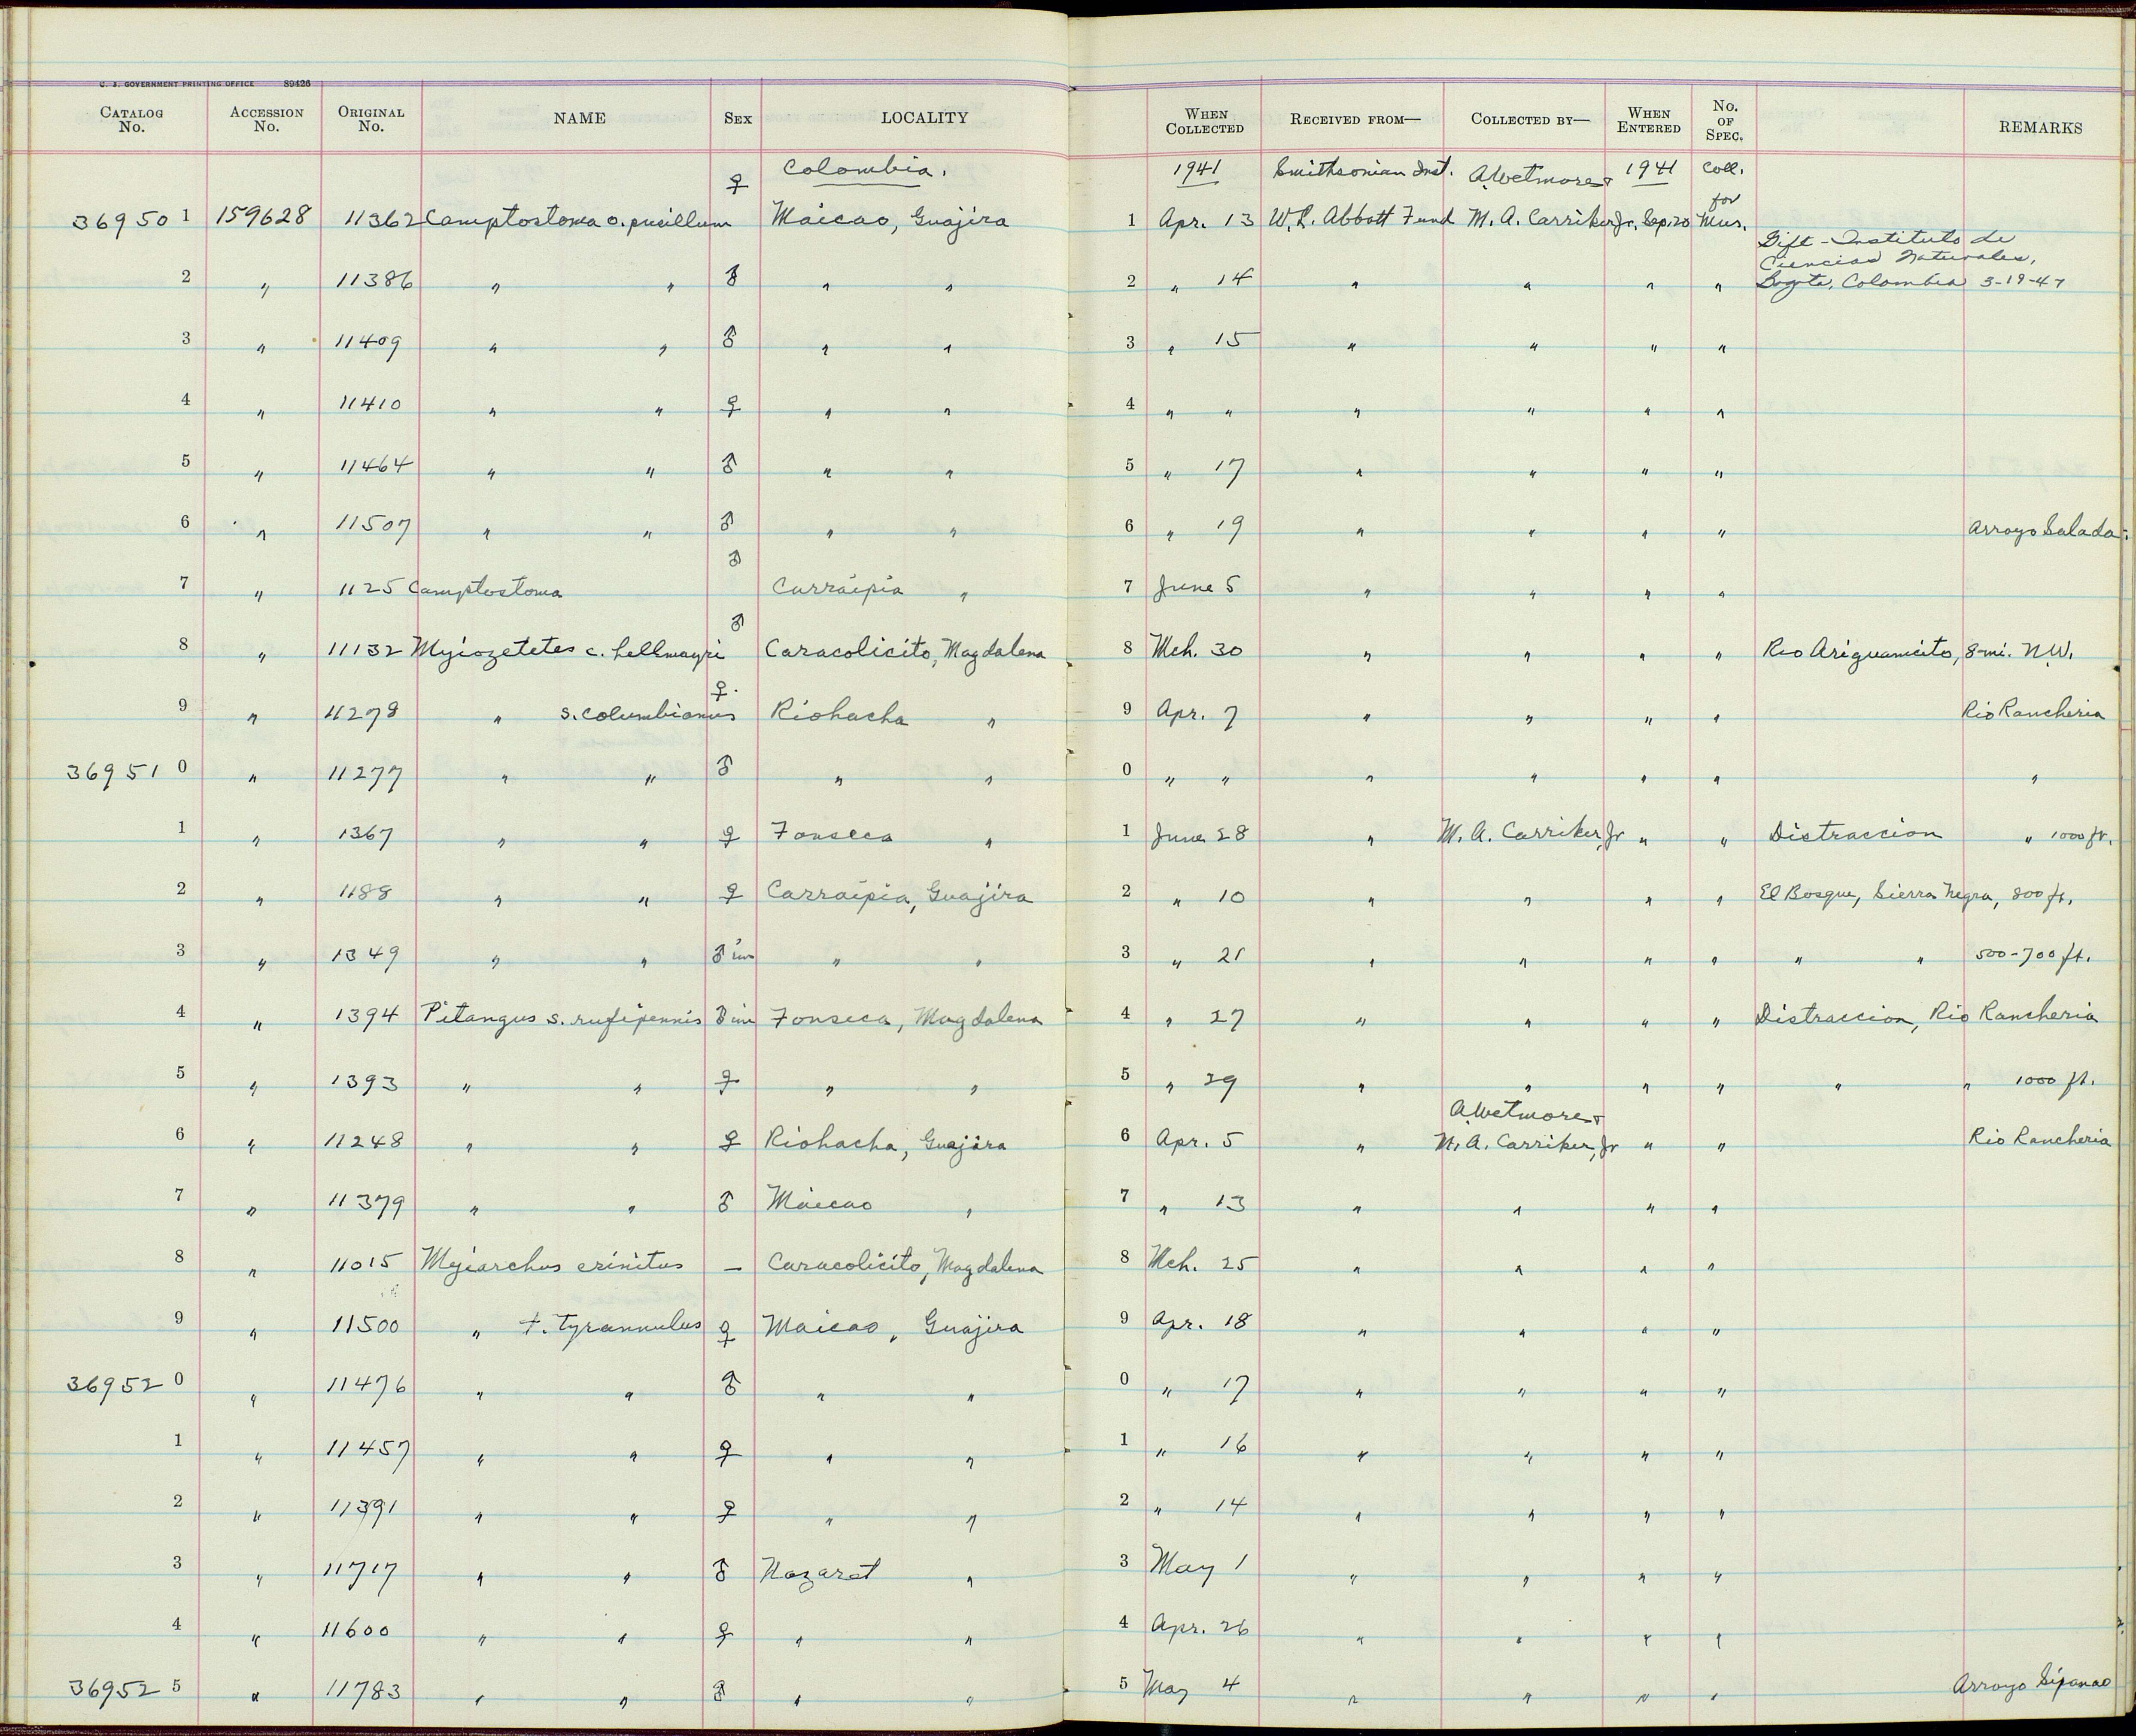 U. S. GOVERNMENT PRINTING OFFICE 89426
CATALOG No. ACCESSION No. ORIGINAL No. NAME SEX LOCALITY WHEN COLLECTED RECEIVED FROM— COLLECTED BY— WHEN ENTERED No. OF SPEC. REMARKS
♀ Colombia. 1941 Smithsonian Inst. A. Wetmore & 1941 Coll. for
36950 1 159628 11362 Camptostoma o. pusillum Maicao, Guajira 1 Apr. 13 W. L. Abbott Fund M. A. Carriker Jr. Sep. 20 Mus.
Gift - Instituto de
Ciencias Naturales,
2 " 11386 " " ♂ " " 2 " 14 " " " " Bogota, Colombia 3-19-47
3 " 11409 " " ♂ " " 3 " 15 " " " "
4 " 11410 " " ♀ " " 4 " " " " " "
5 " 11464 " " ♂ " " 5 " 17 " " " "
6 " 11507 " " ♂ " " 6 " 19 " " " " Arroyo Salada:
7 " 1125 Camptostoma ♂ Carraipia " 7 June 5 " " " "
8 " 11132 Myiozetetes c. hellmayri ♂ Caracolicito, Magdalena 8 Mch. 30 " " " " Rio Ariguanicito, 8 mi. N.W.
9 " 11278 " s. columbianus ♀ Riohacha " 9 Apr. 7 " " " " Rio Rancheria
36951 0 " 11277 " " ♂ " " 0 " " " " " " "
1 " 1367 " " ♀ Fonseca " 1 June 28 " M. A. Carriker, Jr " " Distraccion " 1000 ft.
2 " 1188 " " ♀ Carraipia, Guajira 2 " 10 " " " " El Bosque, Sierra Negra, 800 ft.
3 " 1349 " " ♂ im " " 3 " 21 " " " " " " 500-700 ft.
4 " 1394 Pitangus s. rufipennis ♂ im Fonseca, Magdalena 4 " 27 " " " " Distraccion, Rio Rancheria
5 " 1393 " " ♀ " " 5 " 29 " " " " " " 1000 ft.
A. Wetmore &
6 " 11248 " " ♀ Riohacha, Guajira 6 Apr. 5 " M. A. Carriker, Jr " " Rio Rancheria
7 " 11379 " " ♂ Maicao " 7 " 13 " " " "
8 " 11015 Myiarchus crinitus — Caracolicito, Magdalena 8 Mch. 25 " " " "
9 " 11500 " t. tyrannulus ♀ Maicao, Guajira 9 Apr. 18 " " " "
36952 0 " 11476 " " ♂ " " 0 " 17 " " " "
1 " 11457 " " ♀ " " 1 " 16 " " " "
2 " 11391 " " ♀ " " 2 " 14 " " " "
3 " 11717 " " ♂ Nazaret " 3 May 1 " " " "
4 " 11600 " " ♀ " " 4 Apr. 26 " " " "
36952 5 " 11783 " " ♂ " " 5 May 4 " " " " Arroyo Sipanao